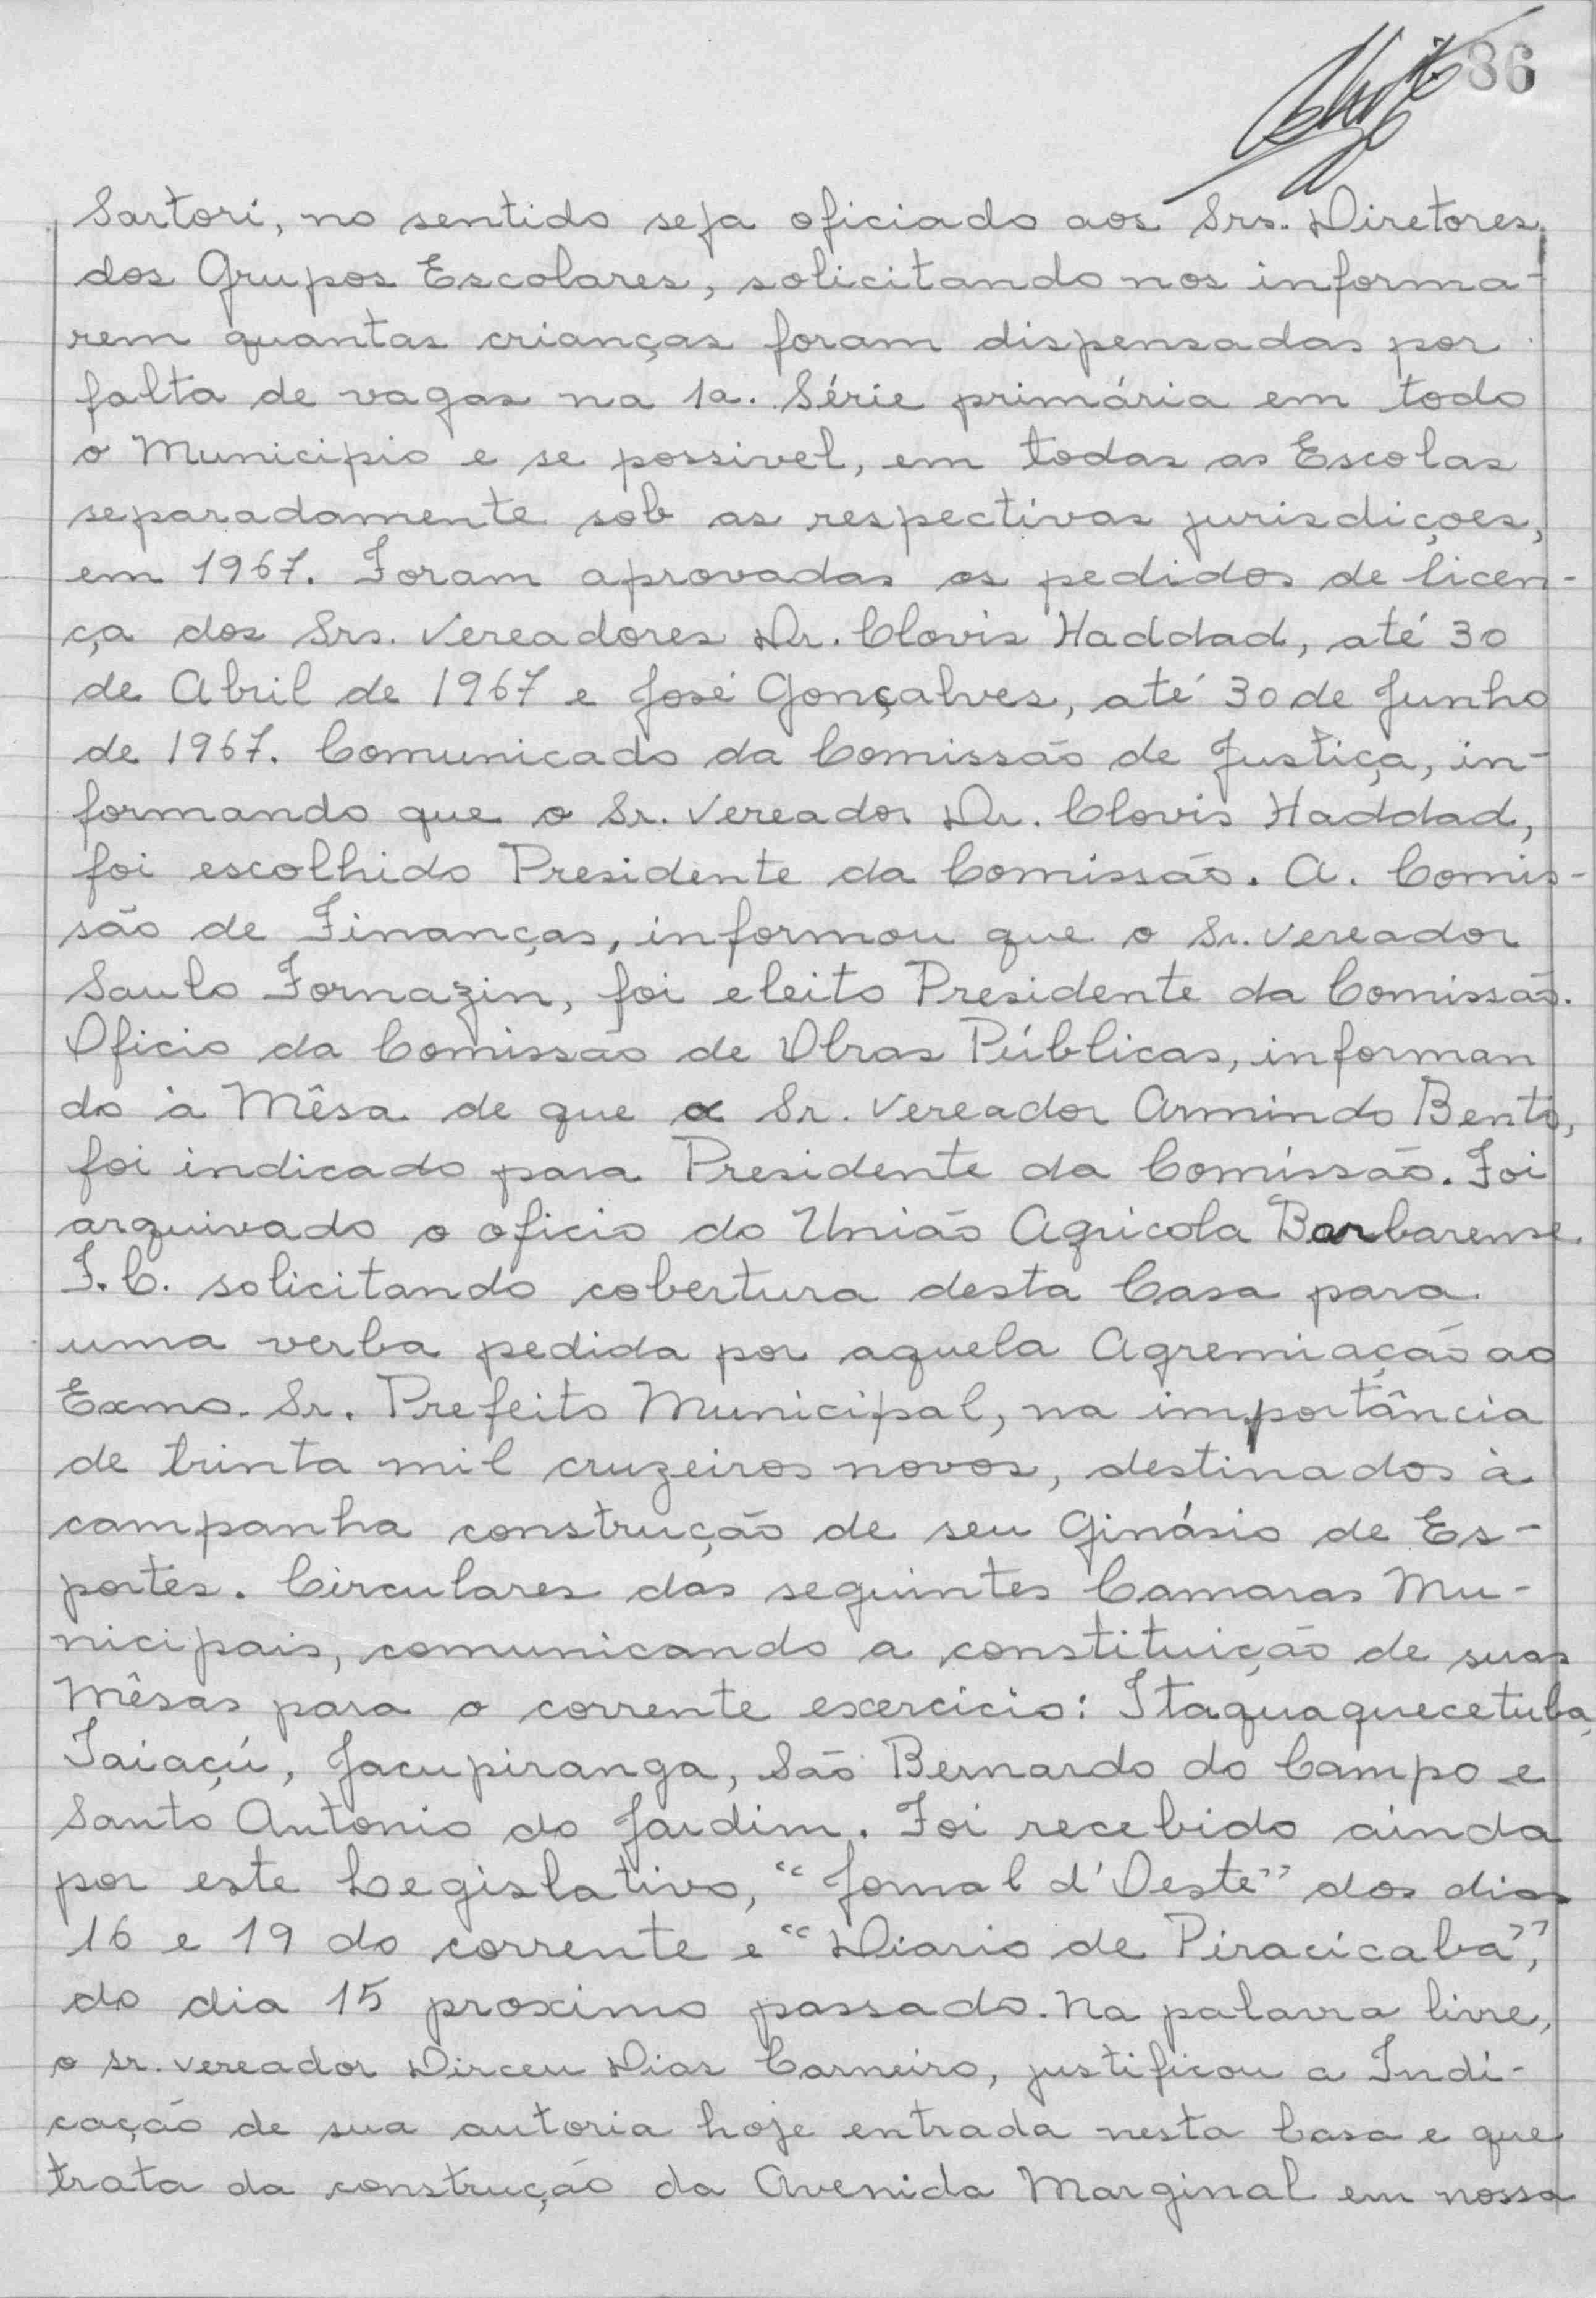 86
Sartori, no sentido seja oficiado aos Srs. Diretores
dos Grupos Escolares, solicitando nos informa-
rem quantas crianças foram dispensadas por
falta de vagas na 1a. Série primária em todo
o Municipio e se possivel, em todas as Escolas
separadamente sob as respectivas jurisdiçoes,
em 1967. Foram aprovadas os pedidos de licen-
ça dos Srs. Vereadores Dr. Clovis Haddad, até 30
de Abril de 1967 e José Gonçalves, até 30 de Junho
de 1967. Comunicado da Comissão de Justiça, in-
formando que o Sr. Vereador Dr. Clovis Haddad,
foi escolhido Presidente da Comissão. A. Comis-
são de Finanças, informou que o Sr. Vereador
Saulo Fornazin, foi eleito Presidente da Comissão.
Oficio da Comissão de Obras Públicas, informan
do à Mêsa de que o Sr. Vereador Armindo Bento,
foi indicado para Presidente da Comissão. Foi
arquivado o oficio do União Agricola Barbarense.
F.C. solicitando cobertura desta Casa para
uma verba pedida por aquela Agremiação ao
Exmo. Sr. Prefeito Municipal, na importância
de trinta mil cruzeiros novos, destinados à
campanha construção de seu Ginásio de Es-
portes. Circulares das seguintes Camaras Mu-
nicipais, comunicando a constituição de suas
Mêsas para o corrente exercicio: Itaquaquecetuba,
Taiaçú, Jacupiranga, São Bernardo do Campo e
Santo Antonio do Jardim. Foi recebido ainda
por este Legislativo, "Jornal d'Oeste" dos dias
16 e 19 do corrente e "Diario de Piracicaba",
do dia 15 proximo passado. Na palavra livre,
o Sr. Vereador Dirceu Dias Carneiro, justificou a Indi-
cação de sua autoria hoje entrada nesta Casa e que
trata da construção da Avenida Marginal em nossa